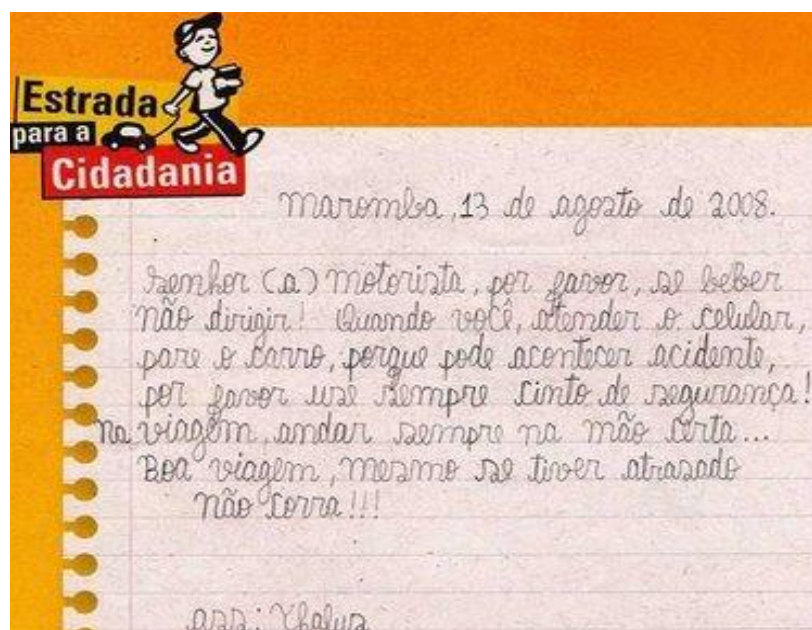 Estrada
para a
Cidadania
Maromba, 13 de agosto de 2008.
Senhor (a) motorista, por favor, se beber
não dirigir! Quando você, atender o celular,
pare o carro, porque pode acontecer acidente,
por favor use sempre cinto de segurança!
Na viagem, andar sempre na mão certa...
Boa viagem, mesmo se tiver atrasado
não corra!!!
ass: